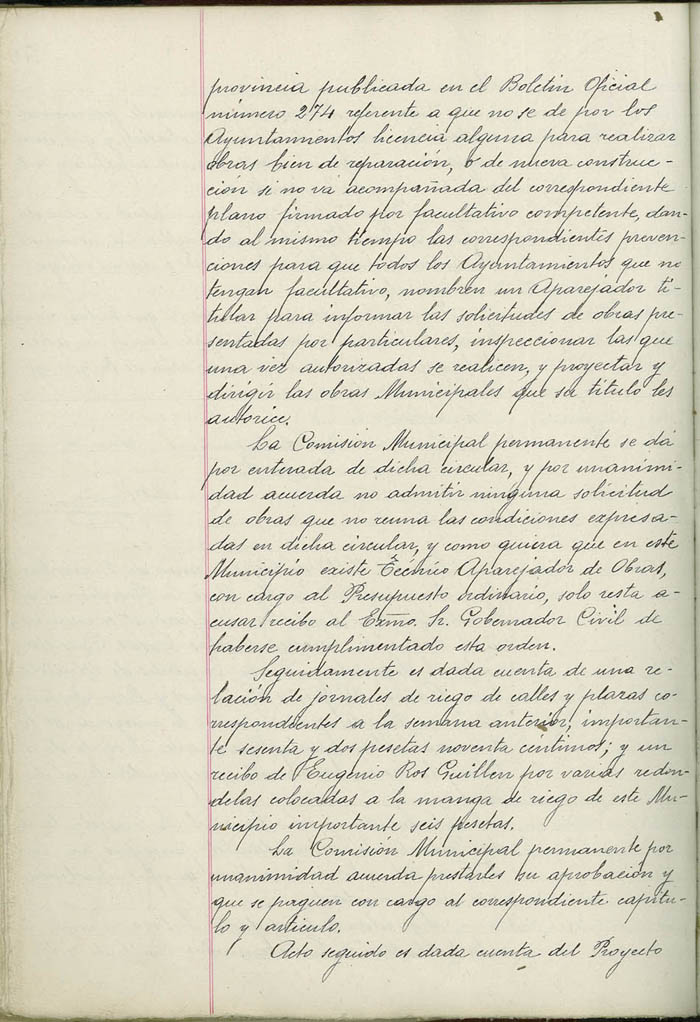 provincia publicada en el Boletin Oficial
número 274 referente a que no se de por los
Ayuntamientos licencia alguna para realizar
obras bien de reparación, o de nueva construc-
ción si no va acompañada del correspondiente
plano firmado por facultativo competente, dan-
do al mismo tiempo las correspondientes preven-
ciones para que todos los Ayuntamientos que no
tengan facultativo, nombren un Aparejador ti-
tular para informar las solicitudes de obras pre-
sentadas por particulares, inspeccionar las que
una vez autorizadas se realicen, y proyectar y
dirigir las obras Municipales que su titulo les
autorice.
La Comisión Municipal permanente se dá
por enterada de dicha circular, y por unanimi-
dad acuerda no admitir ninguna solicitud
de obras que no reuna las condiciones expresa-
das en dicha circular, y como quiera que en este
Municipio existe Técnico Aparejador de Obras,
con cargo al Presupuesto ordinario, solo resta a-
cusar recibo al Exmo. Sr. Gobernador Civil de
haberse cumplimentado esta orden.
Seguidamente es dada cuenta de una re-
lación de jornales de riego de calles y plazas co-
rrespondientes a la semana anterior, importan-
te sesenta y dos pesetas noventa céntimos; y un
recibo de Eugenio Ros Guillen por varias redon-
delas colocadas a la manga de riego de este Mu-
nicipio importante seis pesetas.
La Comisión Municipal permanente por
unanimidad acuerda prestarles su aprobación y
que se paguen con cargo al correspondiente capitu-
lo y articulo.
Acto seguido es dada cuenta del Proyecto